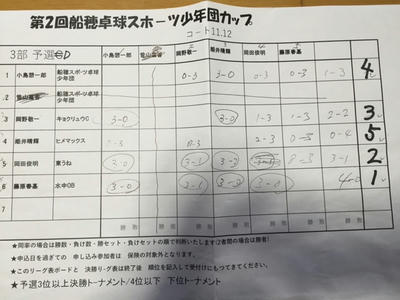 第2回船穂卓球スポーツ少年団カップ
コート11.12
3部 予選 D 小島悠一郎 岡野敬一 船井晴輝 岡田俊明 藤原春基
1 小島悠一郎 船穂スポーツ卓球少年団 0-3 3-0 0-3 0-3 1-3 4
2 船穂スポーツ卓球少年団
3 岡野敬一 キョクリュウC 3-0 3-0 1-3 1-3 2-2 3
4 船井晴輝 ヒメマックス 0-3 2-3 0-3 0-4 5
5 岡田俊明 東うね 3-0 3-1 3-2 0-3 3-1 2
6 藤原春基 水中OB 3-0 3-1 3-0 3-0 4-0 1
7
勝 敗 勝 敗 勝 敗 勝 敗 勝 敗 勝 敗
★同率の場合は勝数・負け数・勝セット・負けセットの順で判断いたします(2者間の場合は勝者)
★申込日を過ぎての 申し込み参加者は 保険の対象外となります。
★このリーグ表ボードと 決勝リーグ表は終了後 順位を記入して受付けにもってきてください。
★予選3位以上決勝トーナメント/4位以下 下位トーナメント